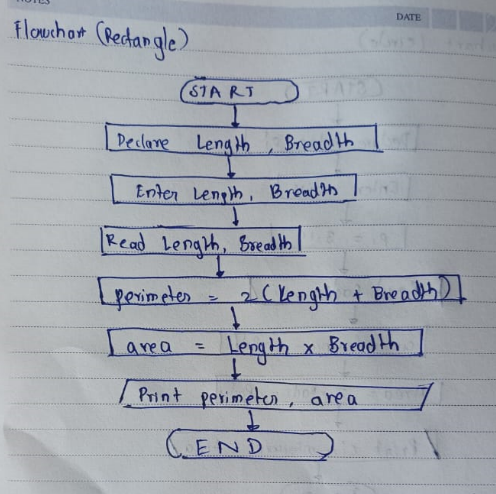 NOTES
DATE
Flowchart (Rectangle)
START
Declare Length, Breadth
Enter Length, Breadth
Read Length, Breadth
perimeter = 2 (Length + Breadth)
area = Length x Breadth
Print perimeter, area
END